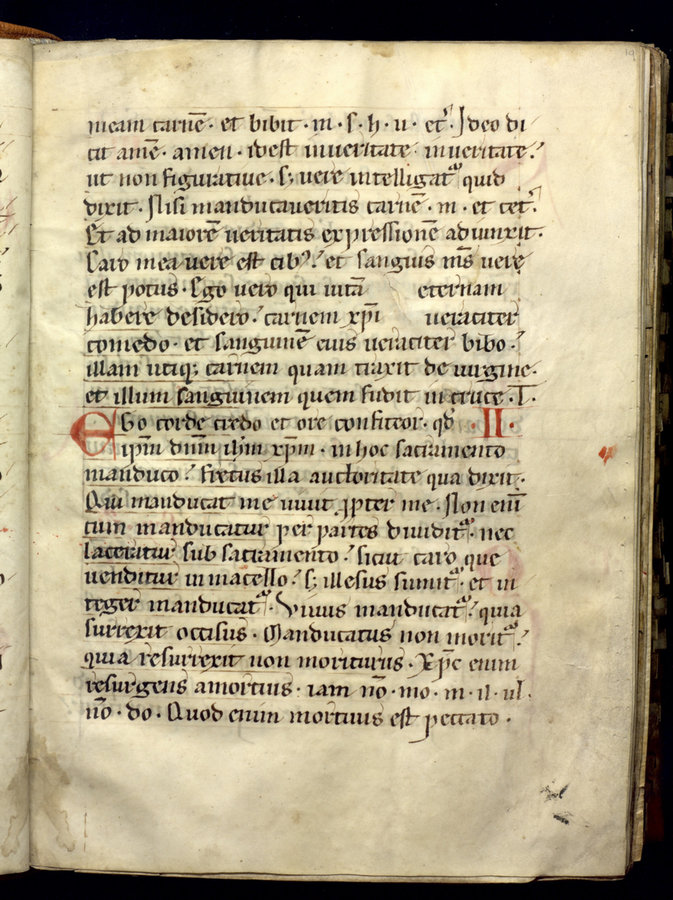 meam carnē · et bibit · m · s · h · u · et⁹ · Ideo di
cit amē · amen · idest inveritate · inveritate ·
ut non figurative · s; vere intelligat᷑ quid
dixit · Nisi manducaveritis carnē · m · et cet⁹ ·
Et ad maiorē veritatis expressionē adiunxit ·
Caro mea vere est cib⁹ · et sanguis m̄s vere
est potus · Ego vero qui vitā eternam
habere desidero · carnem xp̄i veraciter
comedo · et sanguinē eius veraciter bibo ·
illam utiq; carnem quam traxit de virgine ·
et illum sanguinem quem fudit in cruce · T ·
Ego corde credo et ore confiteor · qđ · II ·
ip̄m dn̄m ih̄m xp̄m · in hoc sacramento
manduco · fretus illa auctoritate qua dixit ·
Qui manducat me vivit ꝓpter me · Non eni̅
cum manducatur per partes dividit᷑ · nec
laceratur sub sacramento · sicut caro que
venditur in macello · s; illesus sumit᷑ · et in
teger manducat᷑ · Vivus manducat᷑ · quia
surrexit occisus · Manducatus non morit᷑ ·
quia resurrexit non moriturus · Xp̄c enim
resurgens amortuis · iam nō · mo · m · il · ul ·
nō · do · Quod enim mortuus est peccato ·